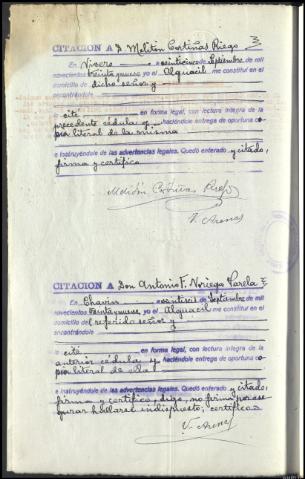 CITACION A D. Melitón Cortiñas Riego 3
En Vivero a veinticinco de Septiembre de mil
novecientos treintaynueve yo el Alguacil me constituí en el
domicilio de dicho señor y
encontrándole
le cité en forma legal, con lectura íntegra de la
precedente cédula y haciéndole entrega de oportuna co
pia literal de la misma
e instruyéndole de las advertencias legales. Quedó enterado y citado,
firma y certifico
Melitón Cortiñas Riego
V. Arenas
CITACION A Don Antonio F. Noriega Varela
En Chavin a veintiseis de Septiembre de mil
novecientos treintaynueve yo el Alguacil me constituí en el
domicilio del referido señor y
encontrándole
le cité en forma legal, con lectura íntegra de la
anterior cédula y haciéndole entrega de oportuna co
pia literal de ella
e instruyéndole de las advertencias legales. Quedó enterado y citado,
firma y certifico, digo, no firma por ase
gurar hallarse indispuesto; certifico
V. Arenas